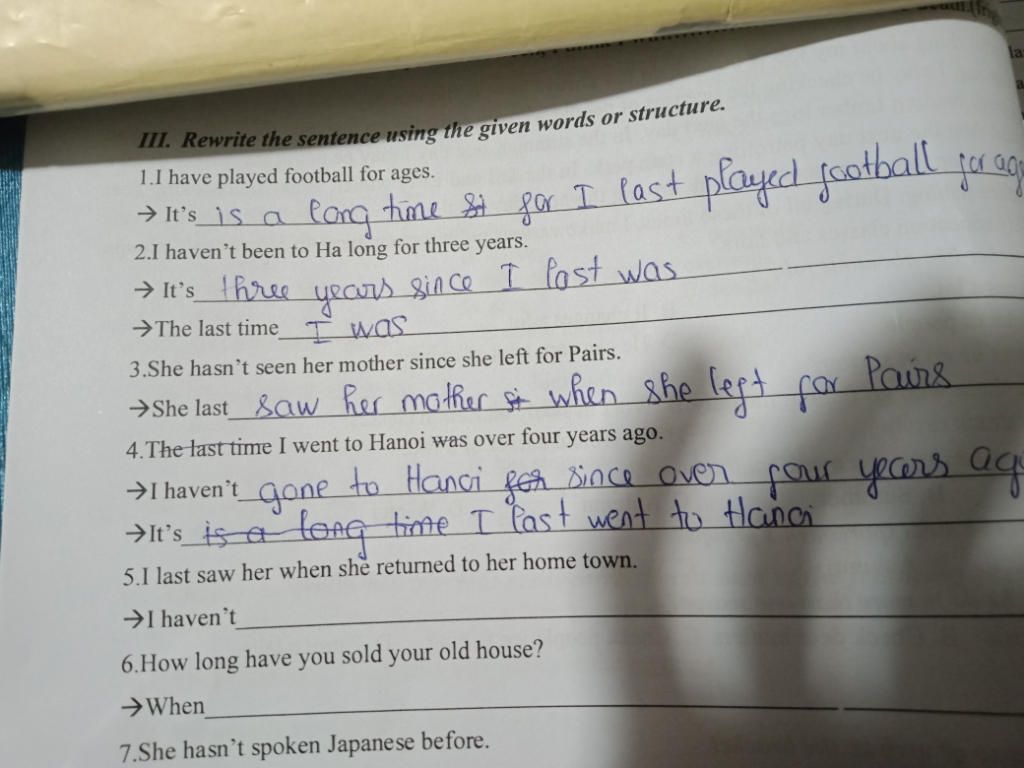 III. Rewrite the sentence using the given words or structure.
1.I have played football for ages.
→ It's is a long time for I last played football for
2.I haven't been to Ha long for three years.
→ It's three years since I last was
→The last time I was
3.She hasn't seen her mother since she left for Pairs.
→She last saw her mother when she left for Pairs
4.The last time I went to Hanoi was over four years ago.
→I haven't gone to Hanoi for since over four years
→It's is a long time I last went to Hanoi
5.I last saw her when she returned to her home town.
→I haven't
6.How long have you sold your old house?
→When
7.She hasn't spoken Japanese before.